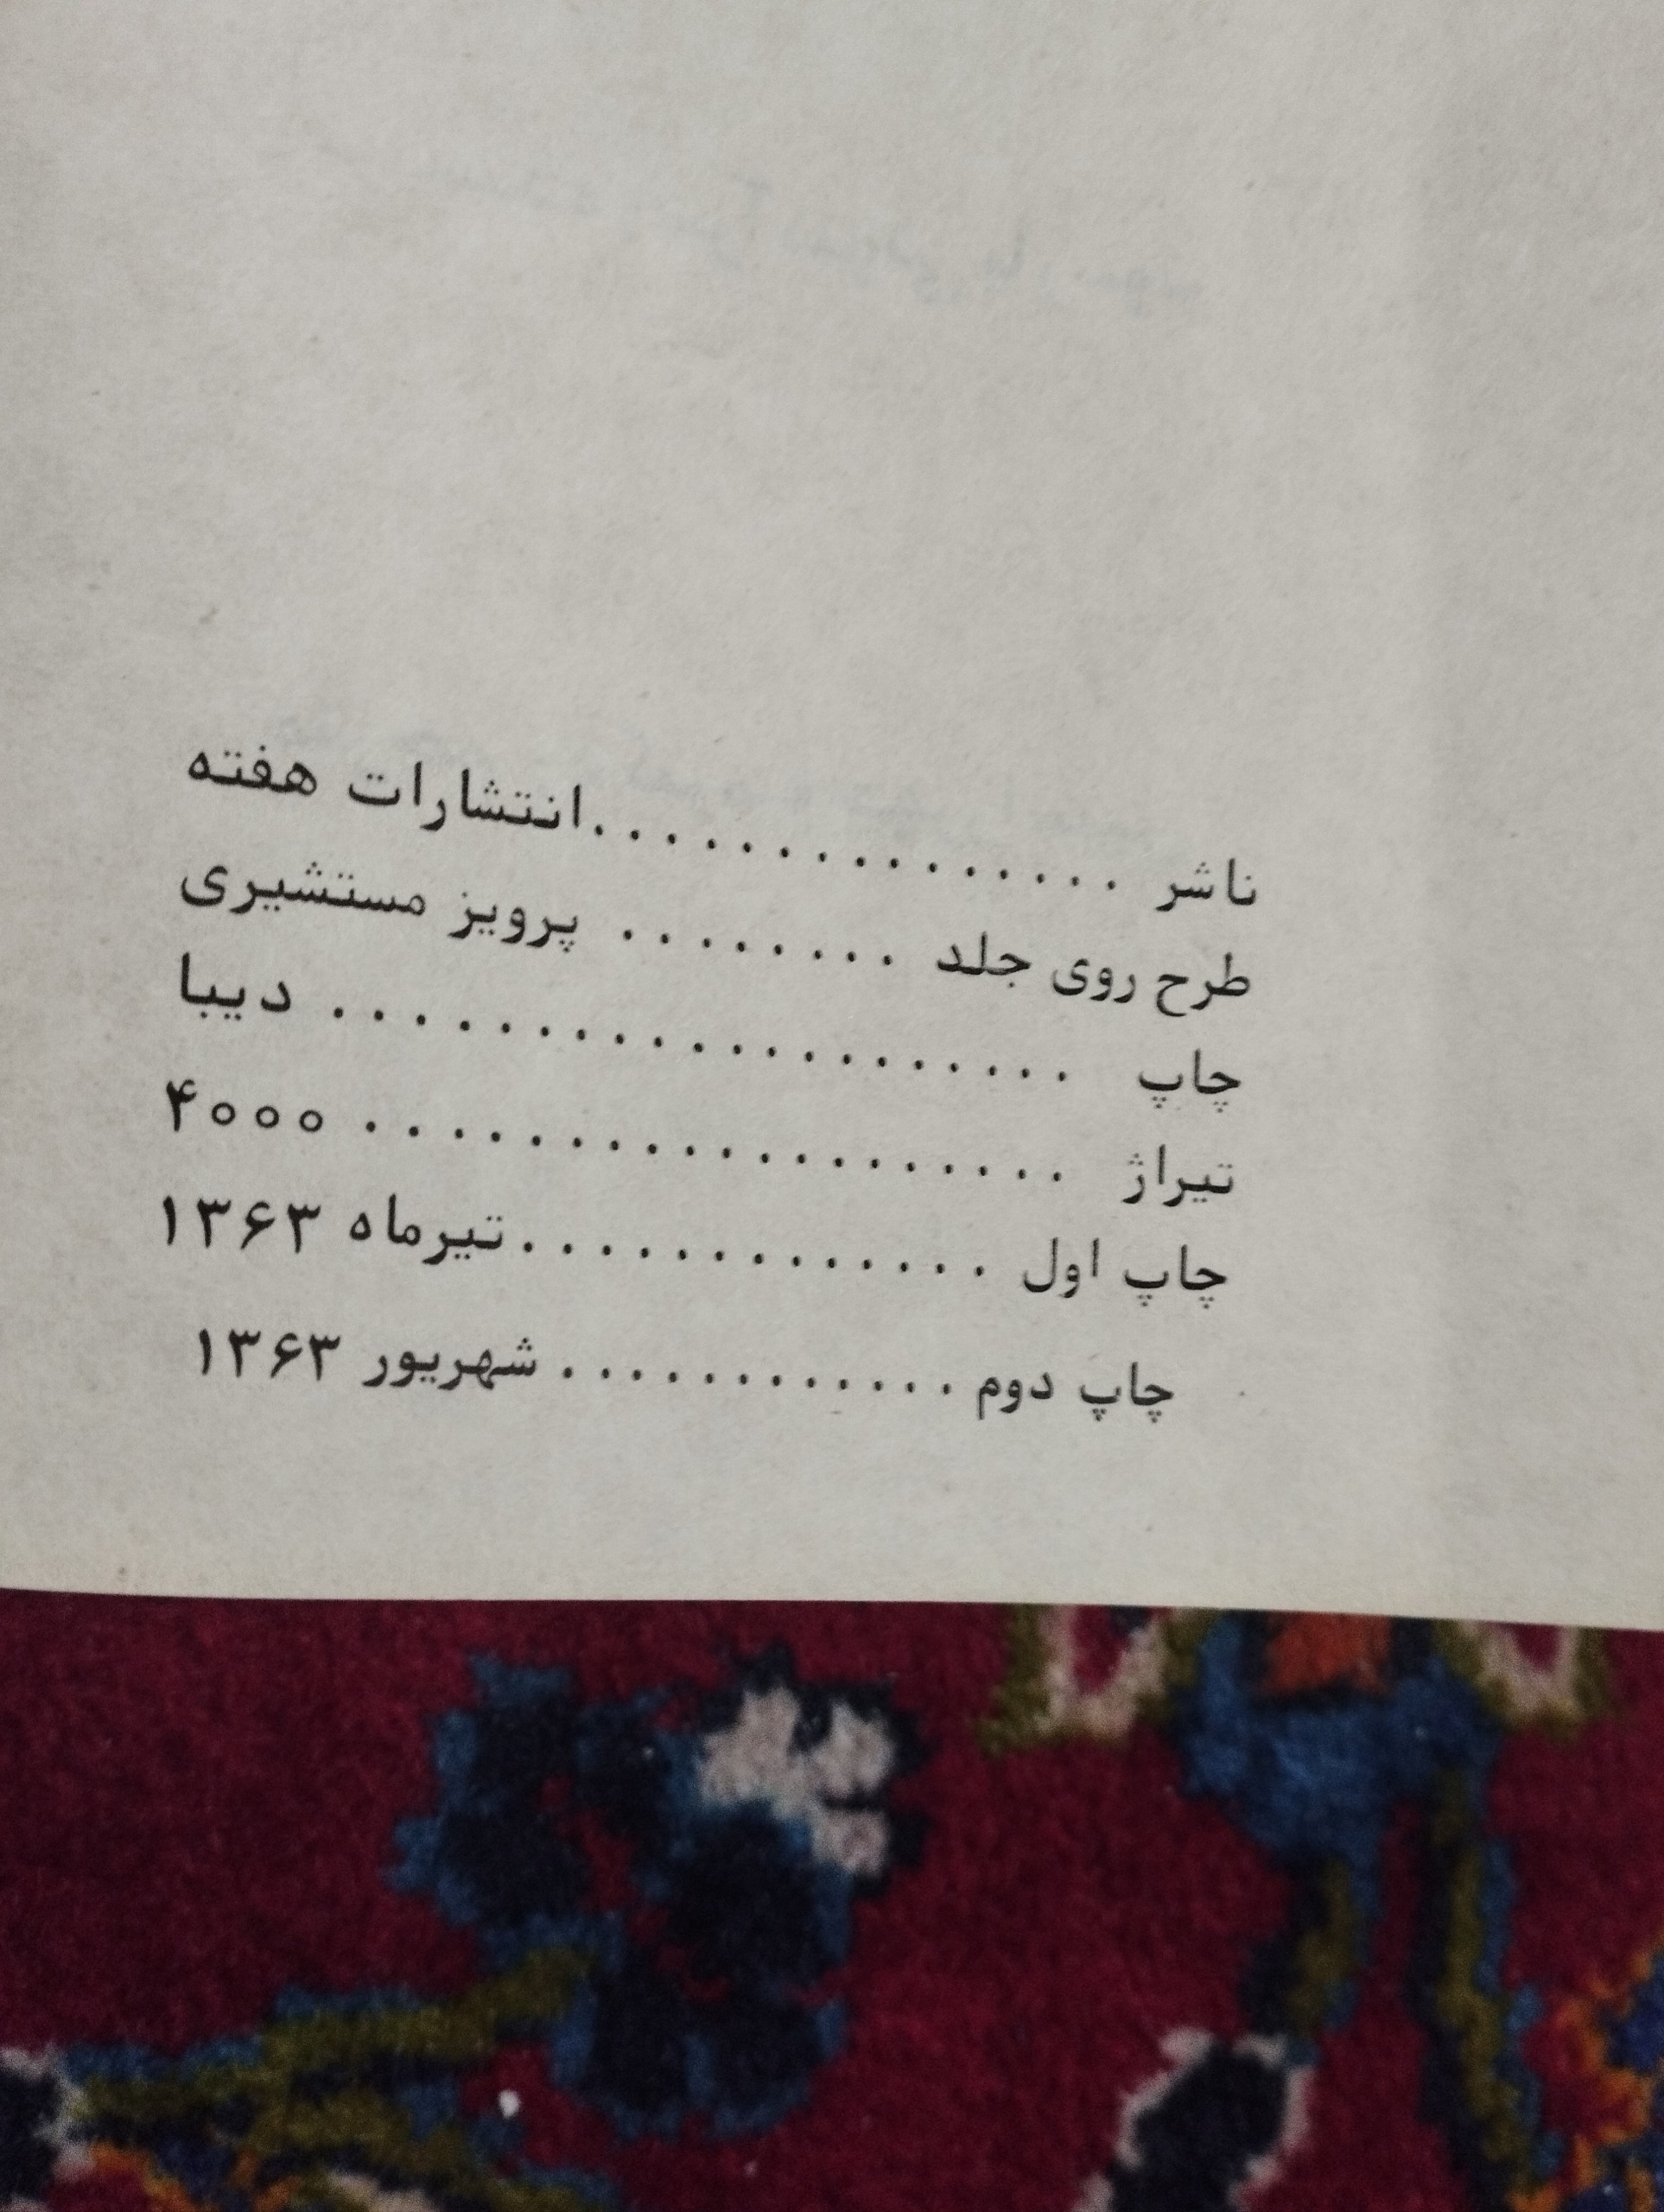 ناشر ...............انتشارات هفته
طرح روی جلد ........ پرویز مستشیری
چاپ .................... دیبا
تیراژ ................... ۴۰۰۰
چاپ اول .............تیرماه ۱۳۶۳
چاپ دوم ........... شهریور ۱۳۶۳